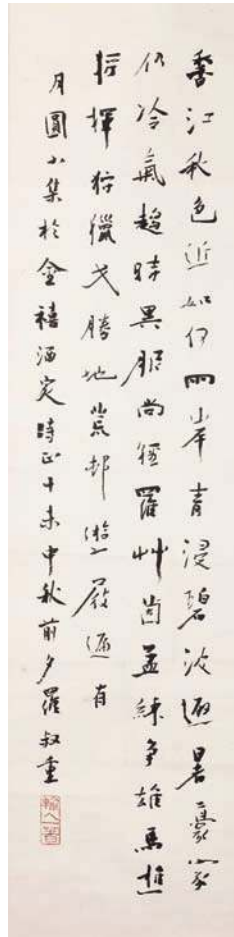 香江秋色近如何兩岸青浸碧波避暑豪家
仍冷氣趨時異服尚輕羅草茵並練爭雄馬
指揮狩獵戈勝地荒邨遊屐遍有
月圓小集於金禧酒家時正十未中秋前夕羅叔重